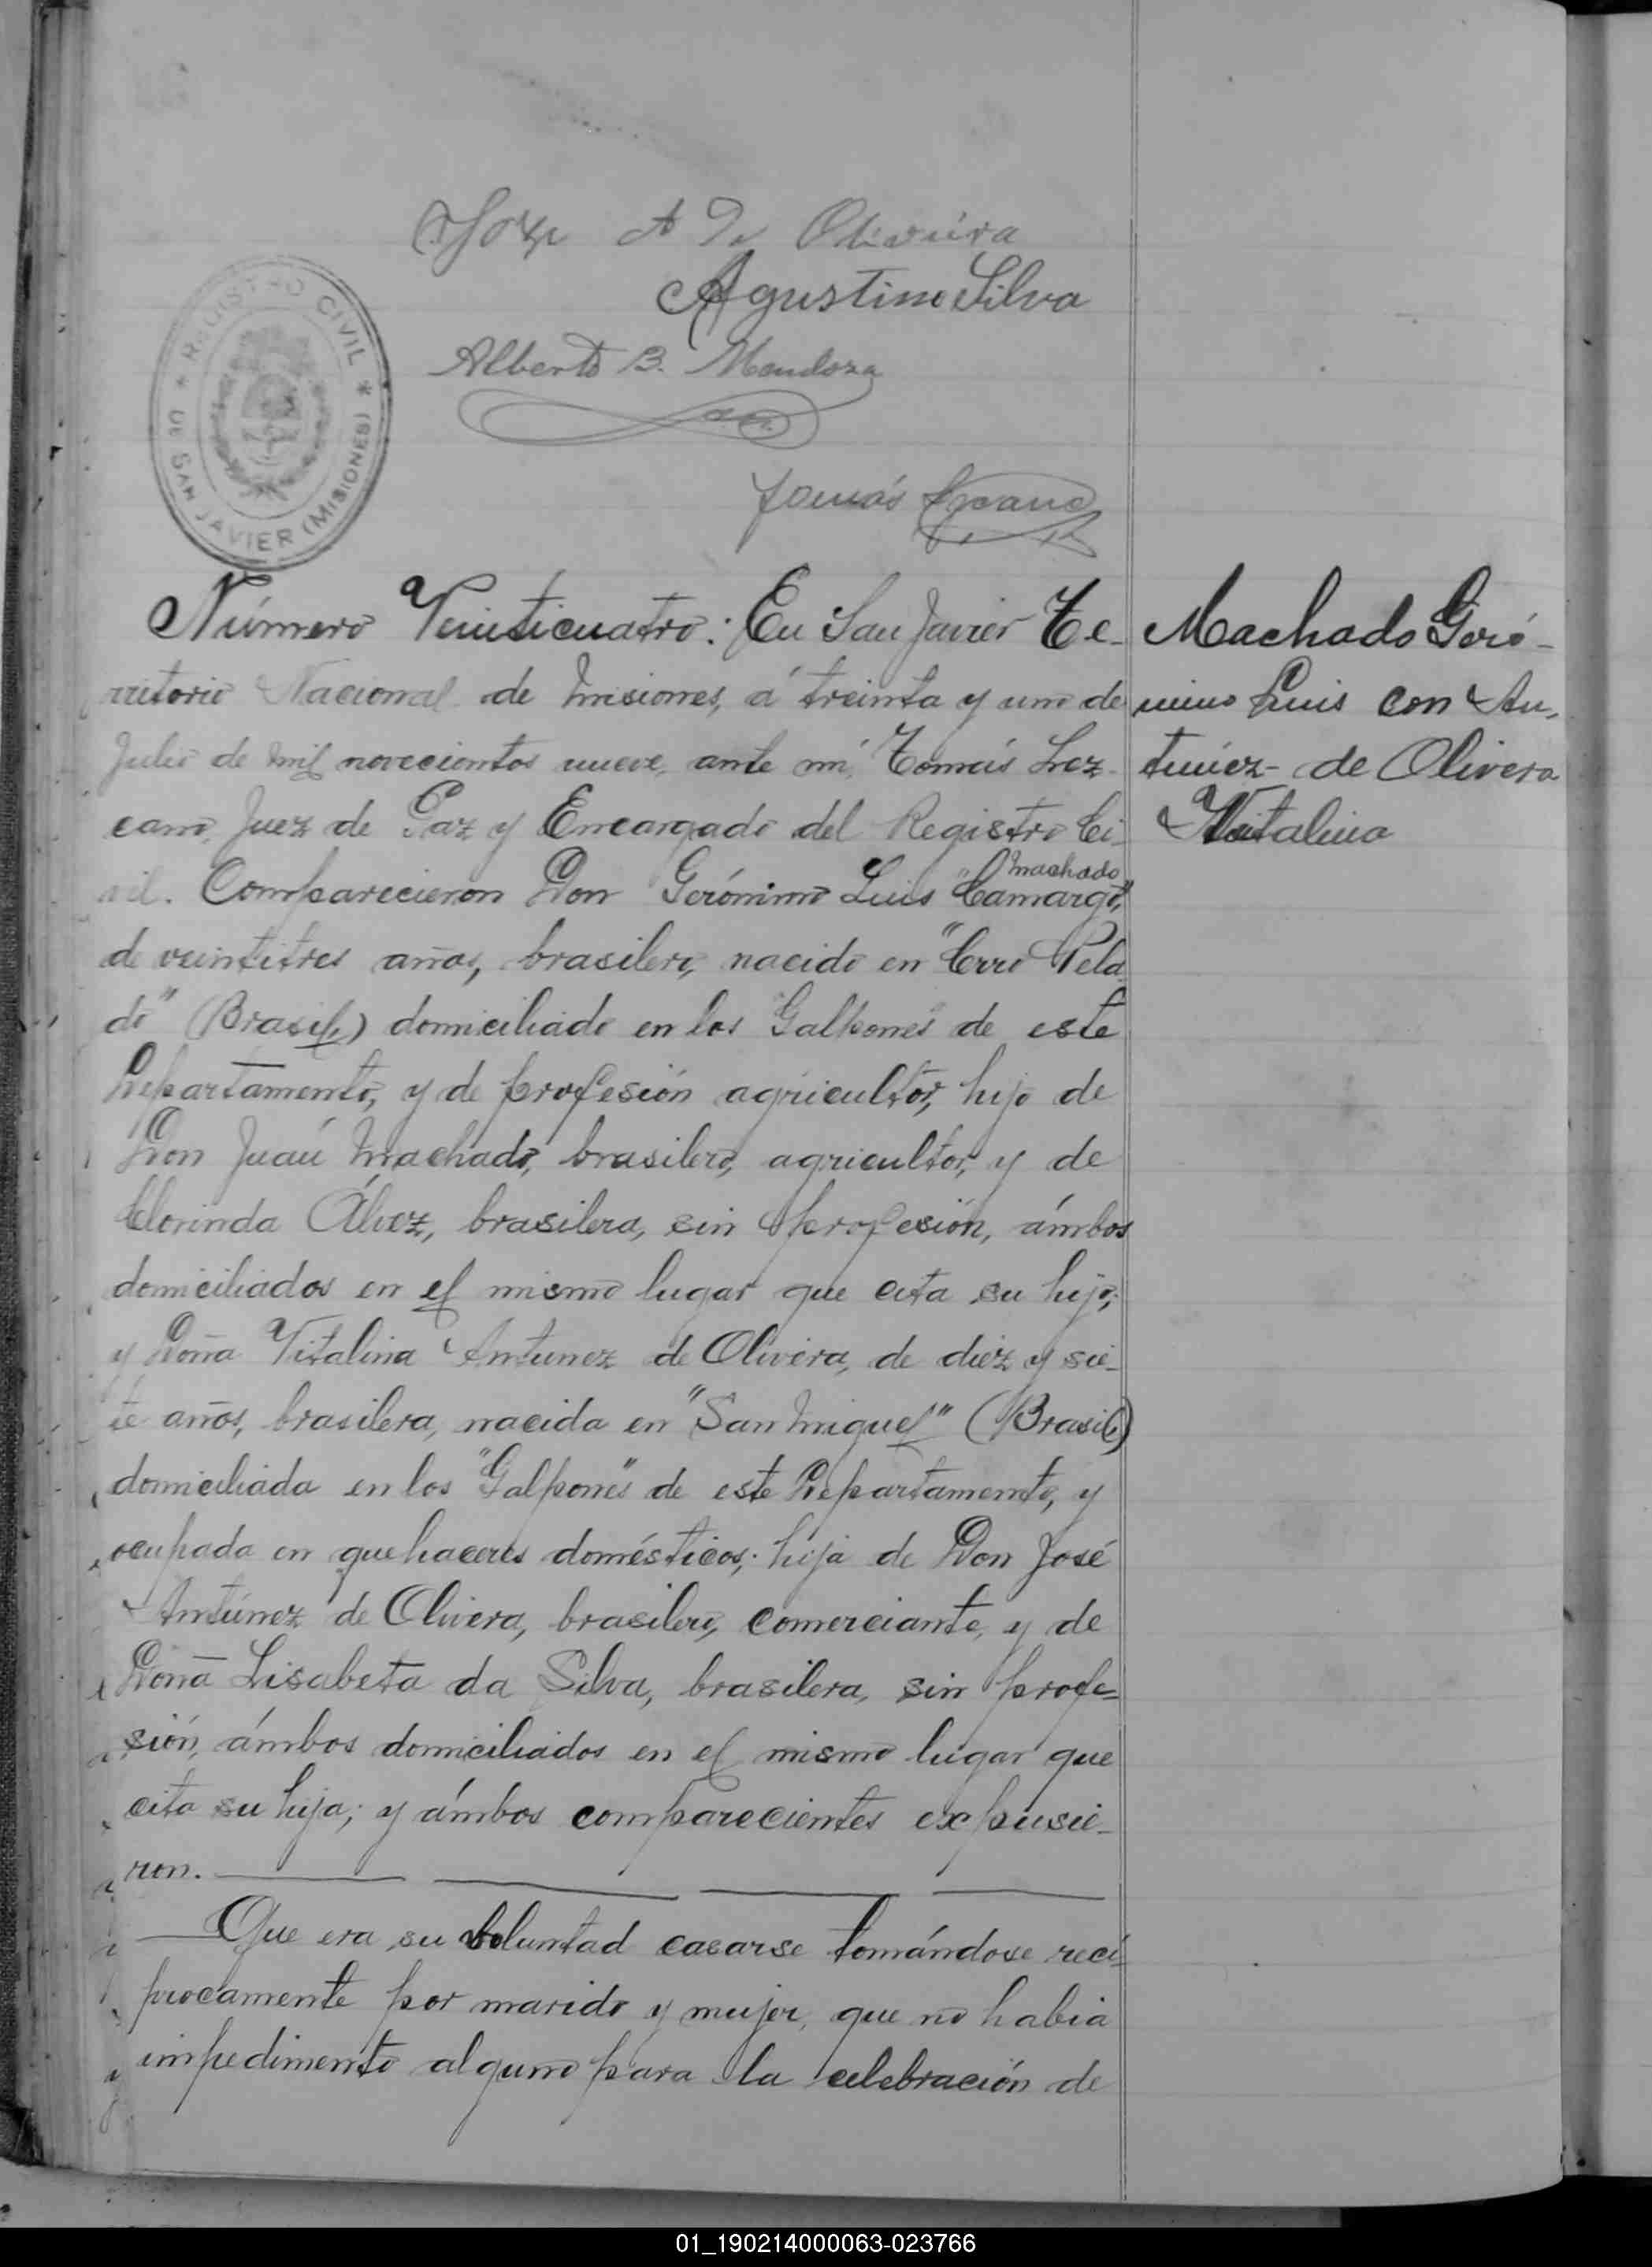 A de Oliveira
Agustin Silva
Alberto B. Mendoza
Tomás Lezcano
REGISTRO CIVIL * DE SAN JAVIER (MISIONES) *
Número Veinticuatro: En San Javier Te-
rritorio Nacional de Misiones, á treinta y uno de
Julio de mil novecientos nueve, ante mí, Tomás Lez-
cano, Juez de Paz y Encargado del Registro Ci-
vil. Comparecieron Don Gerónimo Luis "Camargo," machado
de veintitres años, brasilero, nacido en "Cerro Pela-
do" (Brasil,) domiciliado en los Galpones de este
Departamento, y de profesión agricultor, hijo de
Don Juan Machado, brasilero, agricultor, y de
Clorinda Álvez, brasilera, sin profesión, ámbos
domiciliados en el mismo lugar que cita su hijo;
y Doña Vitalina Antunez de Olivera, de diez y sie-
te años, brasilera, nacida en "San Miguel" (Brasil)
domiciliada en los "Galpones" de este Departamento, y
ocupada en quehaceres domésticos; hija de Don José
Antúnez de Olivera, brasilero, comerciante, y de
Doña Lisabeta da Silva, brasilera, sin profe-
sión, ámbos domiciliados en el mismo lugar que
cita su hija; y ámbos comparecientes expusie-
ron.
Que era su voluntad casarse tomándose recí-
procamente por marido y mujer, que no habia
impedimento alguno para la celebración de
Machado Geró-
nimo Luis con An-
tunez de Olivera
Vitalina
01_190214000063-023766